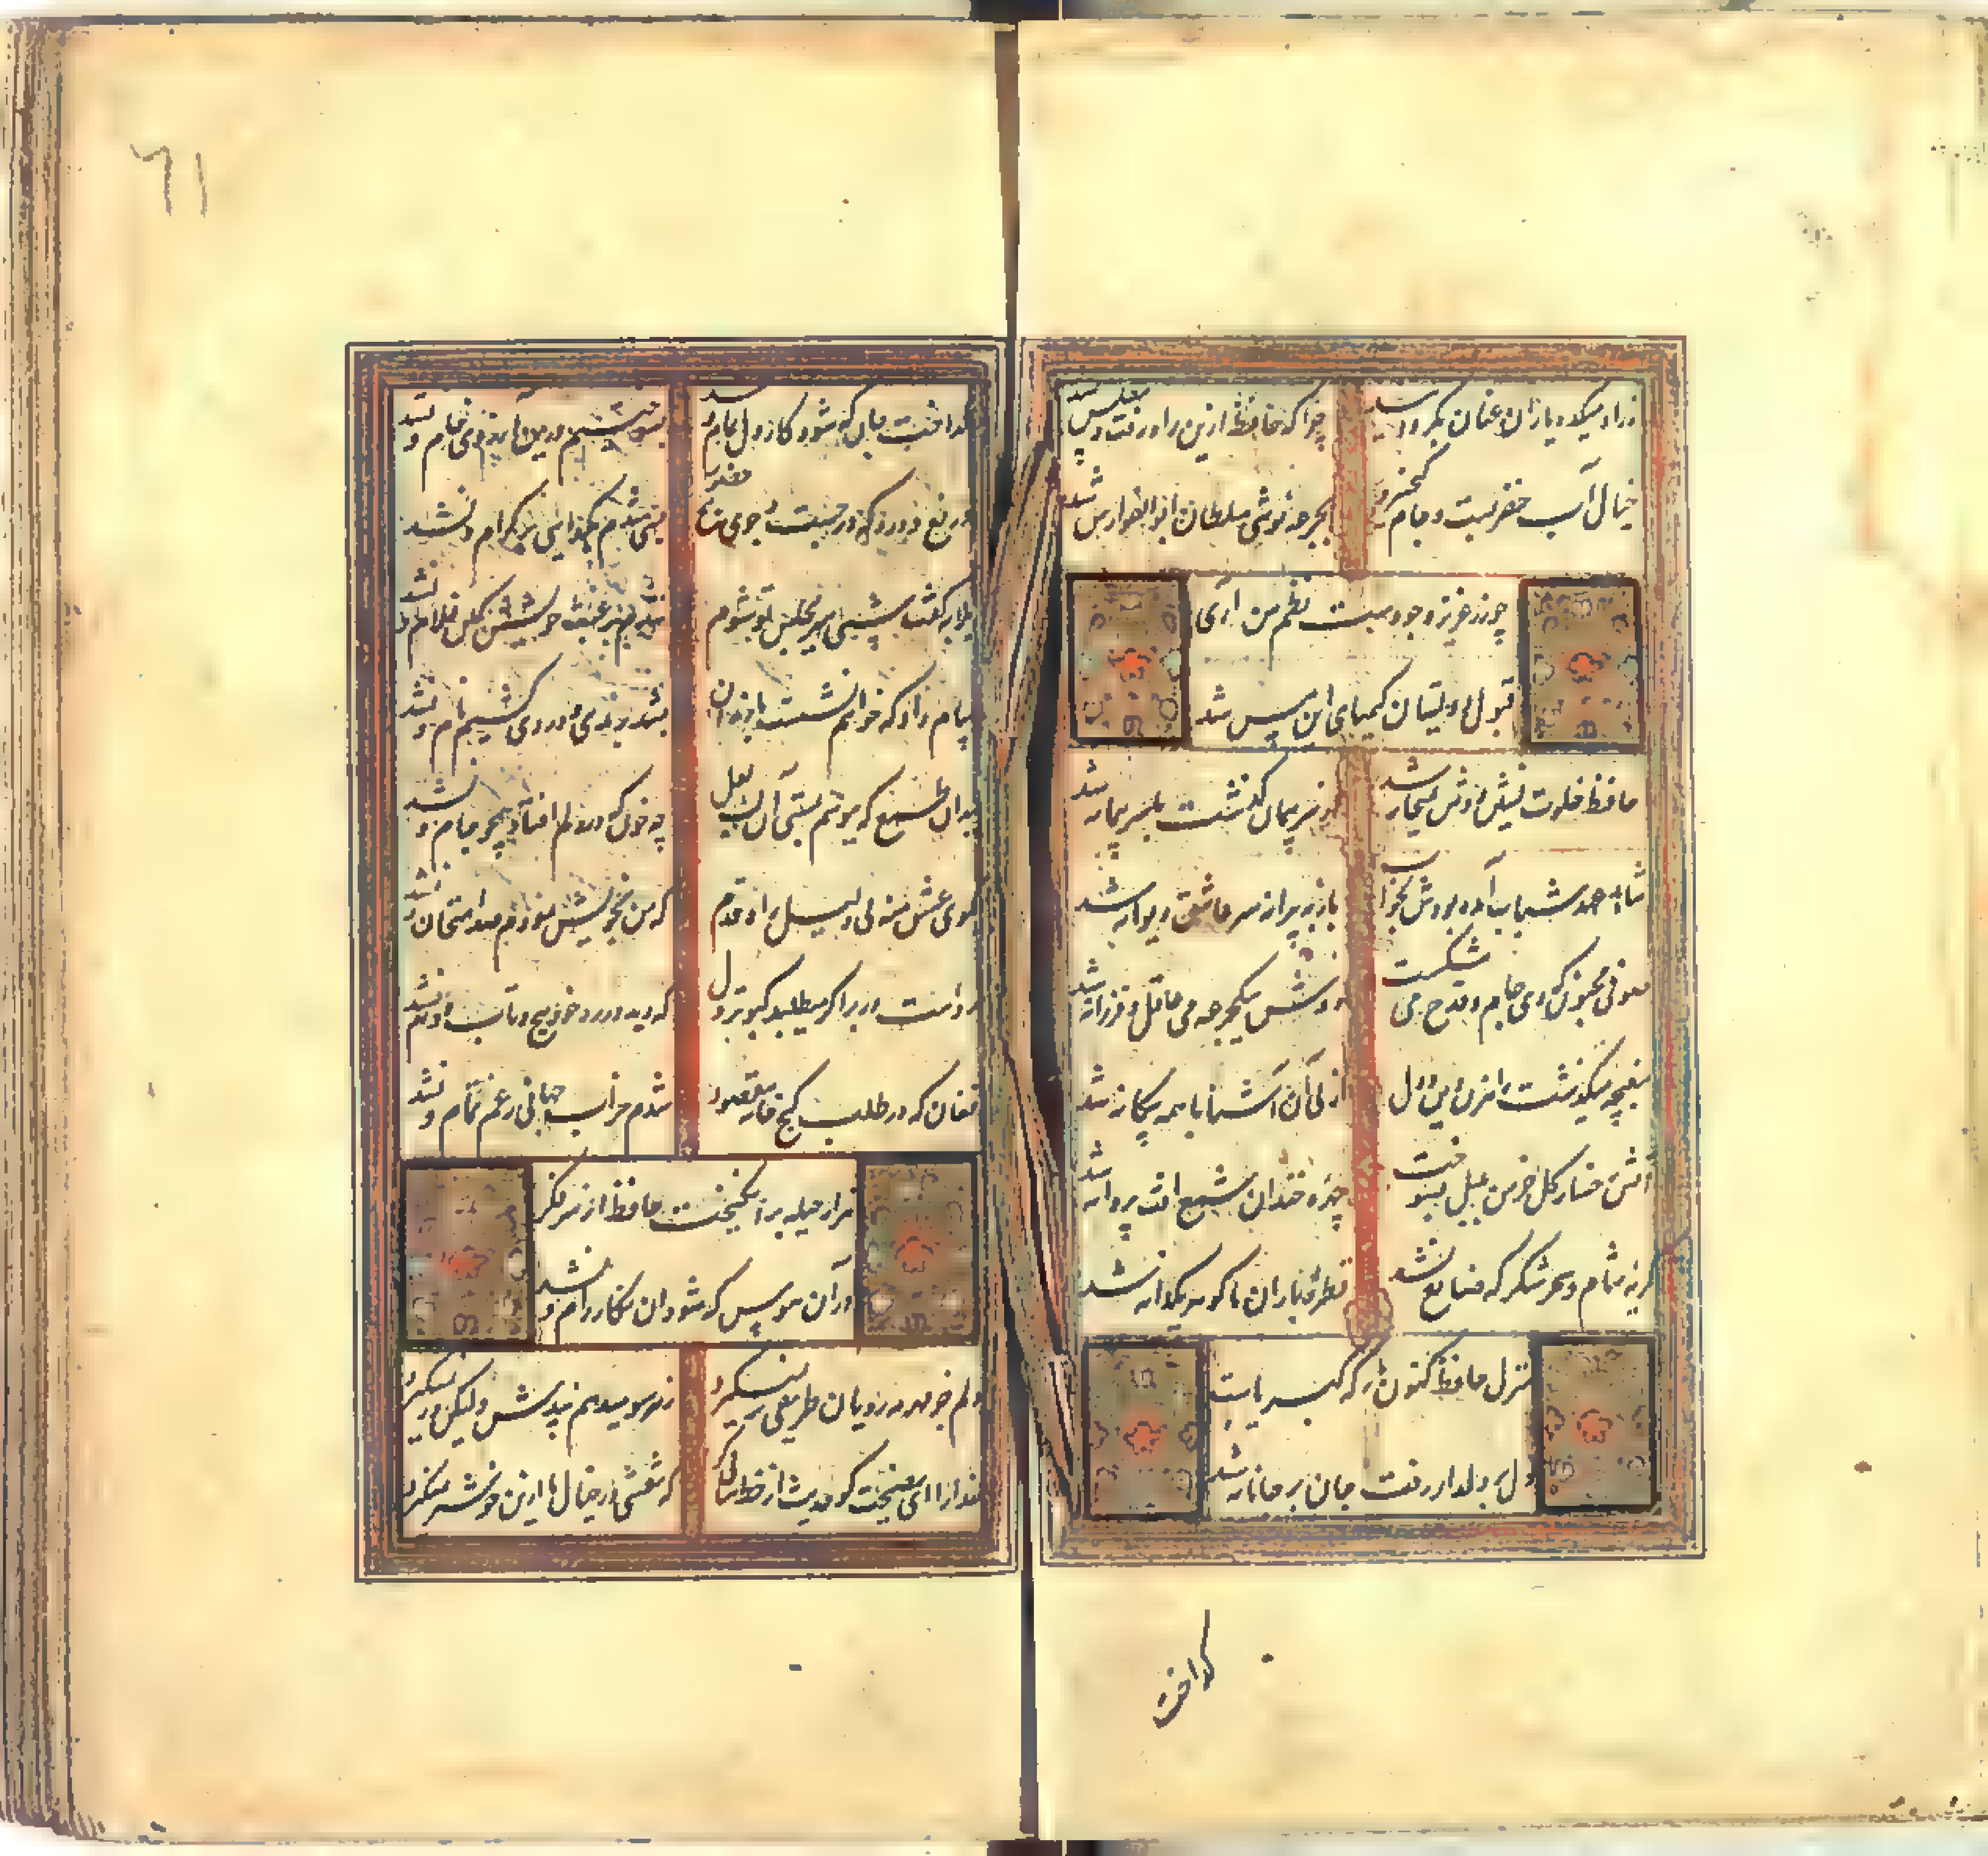 ز راه میکده یاران عنان بگردانید
چرا که حافظ ازین راه رفت و مفلس شد
خیال آب خضر بست و جام کیخسرو
بجرعه نوشی سلطان ابوالفوارس شد
چو زر عزیز وجودست نظم من آری
قبول دولتیان کیمیای این مس شد
حافظ خلوت نشین دوش بمیخانه شد
از سر پیمان گذشت با سر پیمانه شد
شاهد عهد شباب آمده بودش بخواب
باز به پیرانه سر عاشق و دیوانه شد
صوفی مجنون که دی جام و قدح می شکست
دوش بیک جرعه می عاقل و فرزانه شد
مغبچه میگذشت راهزن دین و دل
از پی آن آشنا با همه بیگانه شد
آتش رخسار گل خرمن بلبل بسوخت
چهره خندان شمع آفت پروانه شد
گریه شام و سحر شکر که ضایع نشد
قطره باران ما گوهر یکدانه شد
منزل حافظ کنون بارگه کبریاست
دل بر دلدار رفت جان بر جانانه شد
گداخت
۶۱
گداخت جان که شود کار دل تمام و نشد
بسوختیم درین آرزوی خام و نشد
دریغ و درد که در جست و جوی گنج حضور
بسی شدم بگدائی بر کرام و نشد
بلابه گفت شبی میر مجلس تو شوم
شدم برغبت خویشش کمین غلام و نشد
پیام داد که خواهم نشست با رندان
بشد برندی و دردی کشیم نام و نشد
بدان طمع که ببوسم بمستی آن لب لعل
چه خون که در دلم افتاد همچو جام و نشد
بکوی عشق منه بی دلیل راه قدم
که من بخویش نمودم صد اهتمام و نشد
رواست در بر اگر میطپد کبوتر دل
که دید در ره خود پیچ و تاب دام و نشد
فغان که در طلب گنج نامه مقصود
شدم خراب جهانی ز غم تمام و نشد
هزار حیله برانگیخت حافظ از سر فکر
در آن هوس که شود آن نگار رام و نشد
دلم جز مهر مه رویان طریقی بر نمیگیرد
ز هر در میدهم پندش ولیکن در نمیگیرد
خدا را ای نصیحت گو حدیث از خط ساقی گو
که نقشی در خیال ما ازین خوشتر نمیگیرد